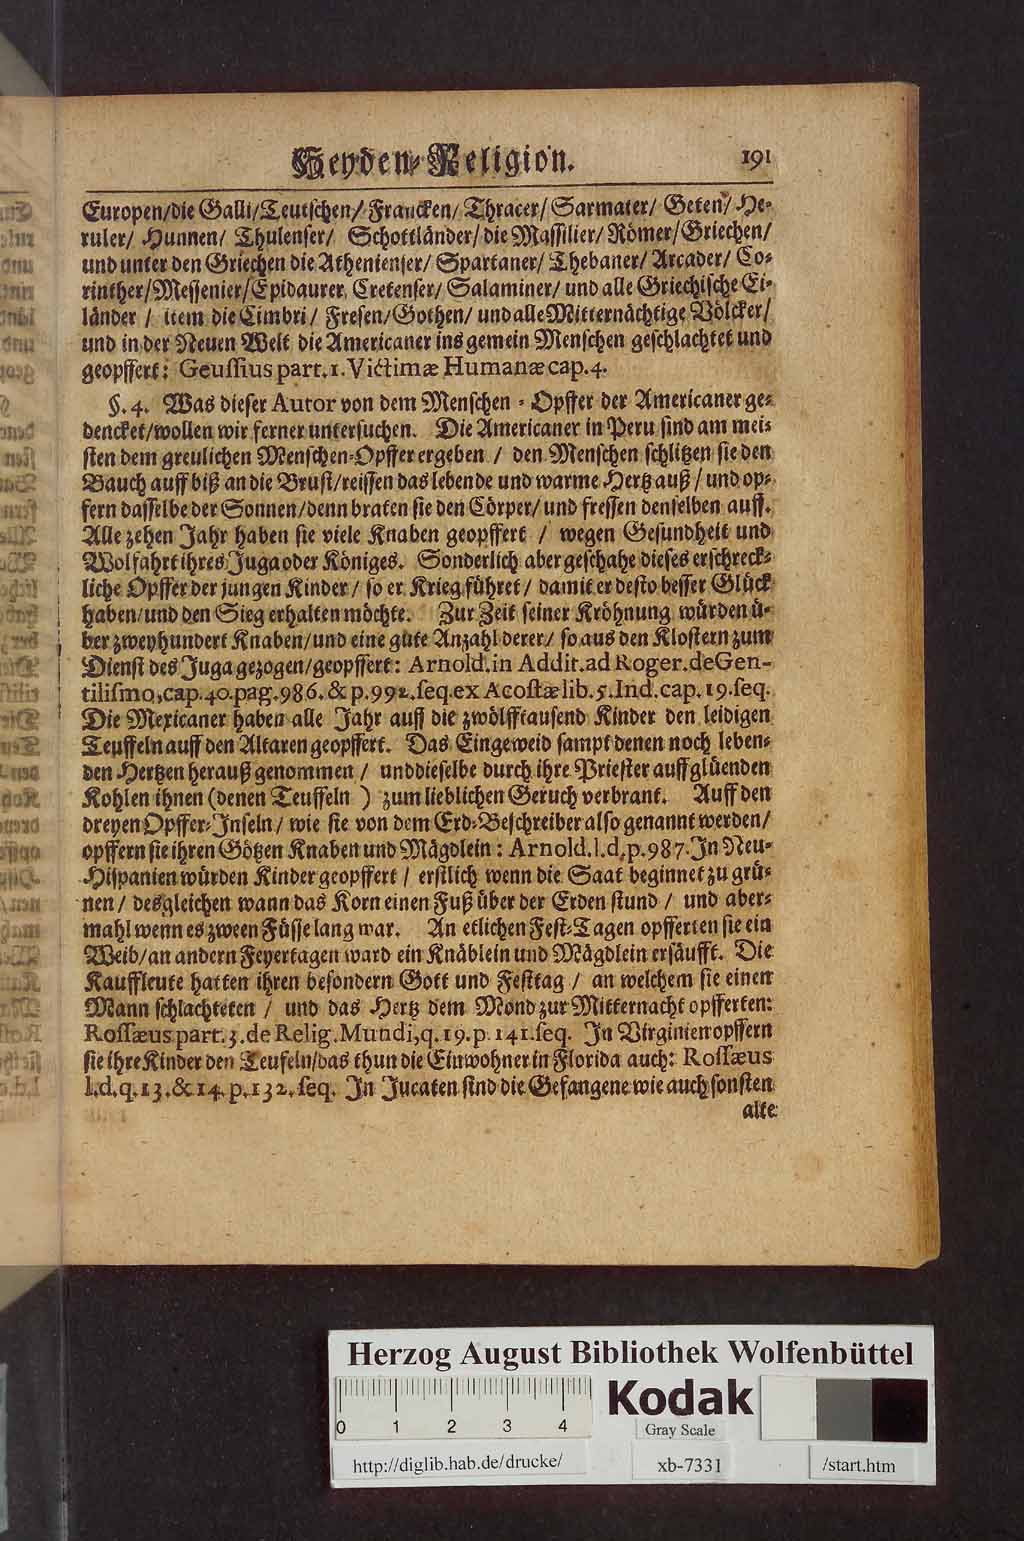 Heyden-Religion. 191
Europen/die Galli/Teutschen/ Francken/ Thracer/ Sarmater/ Geten/ He-
ruler/ Hunnen/ Thulenser/ Schottländer/ die Massilier/ Römer/Griechen/
und unter den Griechen die Athenienser/ Spartaner/ Thebaner/ Arcader/ Co-
rinther/Messenier/Epidaurer, Cretenser/ Salaminer/ und alle Griechische Ei-
länder / item die Cimbri/ Fresen/Gothen/ und alle Mitternächtige Völcker/
und in der Neuen Welt die Americaner ins gemein Menschen geschlachtet und
geopffert: Geussius part. 1. Victimæ Humanæ cap. 4.
§. 4. Was dieser Autor von dem Menschen-Opffer der Americaner ge-
dencket/wollen wir ferner untersuchen. Die Americaner in Peru sind am mei-
sten dem greulichen Menschen-Opffer ergeben / den Menschen schlitzen sie den
Bauch auff biß an die Brust/reissen das lebende und warme Hertz auß/ und op-
fern dasselbe der Sonnen/denn braten sie den Cörper/ und fressen denselben auff.
Alle zehen Jahr haben sie viele Knaben geopffert / wegen Gesundheit und
Wolfahrt ihres Juga oder Königes. Sonderlich aber geschahe dieses erschreck-
liche Opffer der jungen Kinder/ so er Krieg führet/ damit er desto besser Glück
haben/und den Sieg erhalten möchte. Zur Zeit seiner Kröhnung würden ü-
ber zweyhundert Knaben/und eine gute Anzahl derer/ so aus den Klostern zum
Dienst des Juga gezogen/geopffert: Arnold. in Addit. ad Roger. de Gen-
tilismo, cap. 40. pag. 986. & p. 992. seq. ex Acostæ lib. 5. Ind. cap. 19. seq.
Die Mexicaner haben alle Jahr auff die zwölfftausend Kinder den leidigen
Teuffeln auff den Altaren geopffert. Das Eingeweid sampt denen noch leben-
den Hertzen herauß genommen / und dieselbe durch ihre Priester auff glüenden
Kohlen ihnen (denen Teuffeln ) zum lieblichen Geruch verbrant. Auff den
dreyen Opffer-Inseln/ wie sie von dem Erd-Beschreiber also genannt werden/
opffern sie ihren Götzen Knaben und Mägdlein: Arnold. l. d. p. 987. In Neu-
Hispanien würden Kinder geopffert / erstlich wenn die Saat beginnet zu grü-
nen/ desgleichen wann das Korn einen Fuß über der Erden stund / und aber-
mahl wenn es zween Füsse lang war. An etlichen Fest-Tagen opfferten sie ein
Weib/an andern Feyertagen ward ein Knäblein und Mägdlein ersäufft. Die
Kauffleute hatten ihren besondern Gott und Festtag / an welchem sie einen
Mann schlachteten / und das Hertz dem Mond zur Mitternacht opfferten:
Rossæus part. 3. de Relig. Mundi, q. 19. p. 141. seq. In Virginien opffern
sie ihre Kinder den Teufeln/das thun die Einwohner in Florida auch: Rossæus
l. d. q. 13. & 14. p. 132. seq. In Jucaten sind die Gefangene wie auch sonsten
alte
Herzog August Bibliothek Wolfenbüttel
0 1 2 3 4
Kodak
Gray Scale
http://diglib.hab.de/drucke/ xb-7331 /start.htm